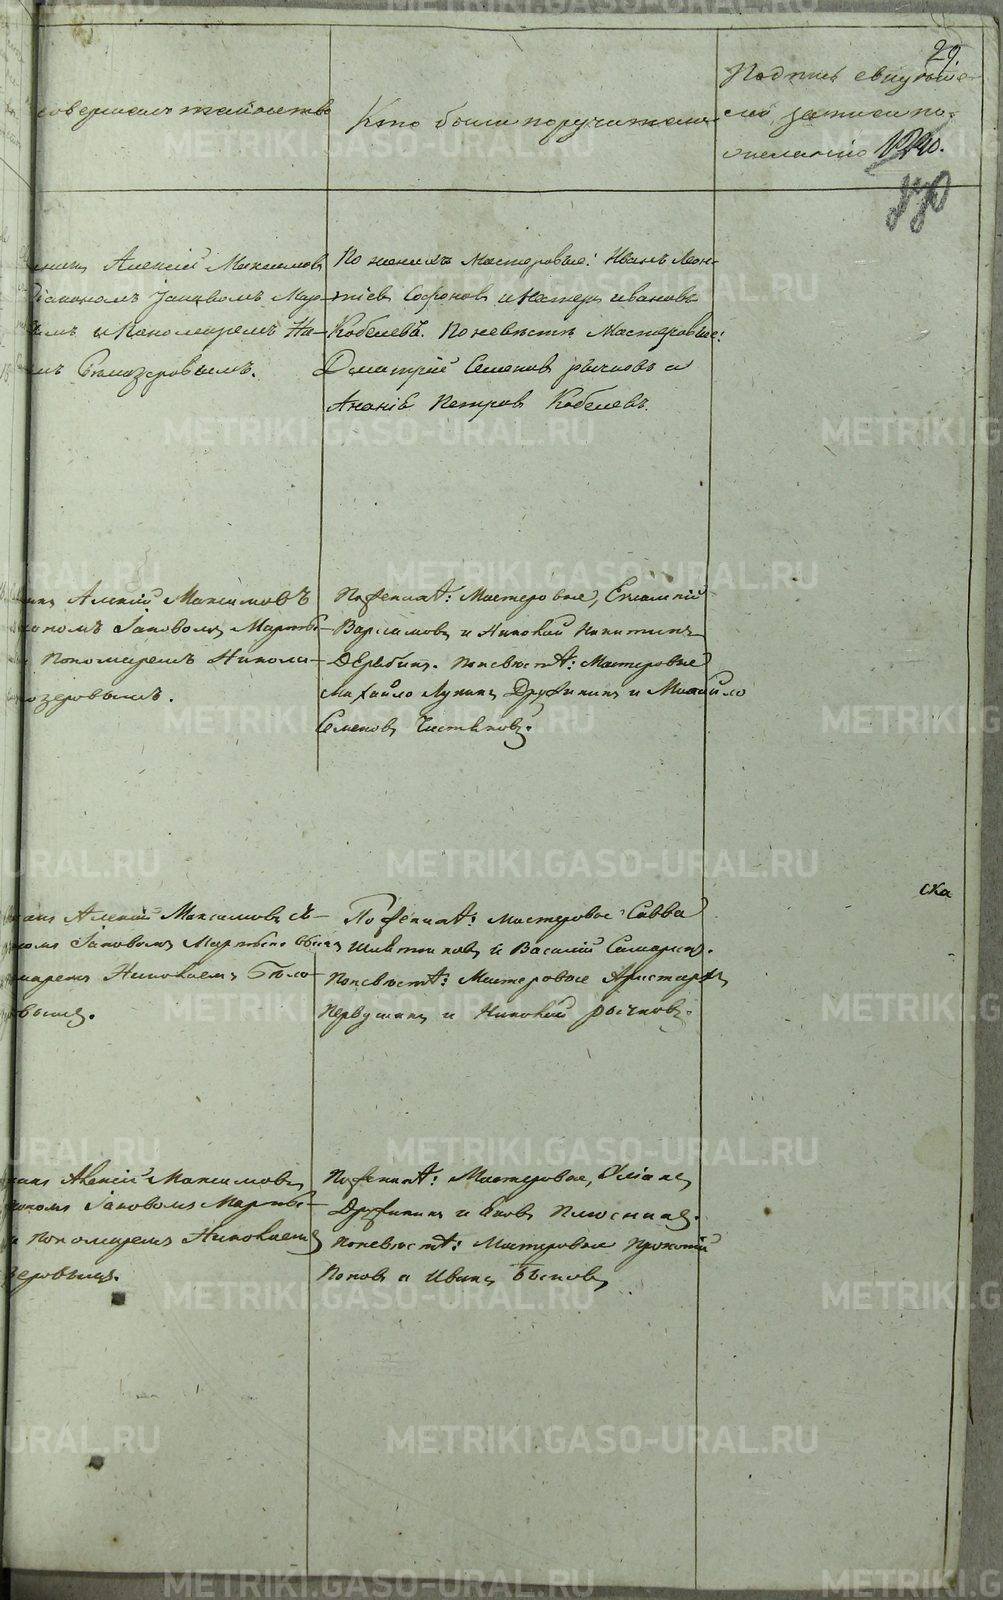 29.
совершалъ таинство
Кто были поручители
Подпись свидѣте-
лей записи по
желанію 1220.
Алексій Максимовъ
Діакономъ Іаковомъ Мар-
и Пономаремъ Ни-
Бѣлозеровымъ.
По женихѣ Мастеровые: Иванъ Леон-
тіевъ Софоновъ и Нестеръ Ивановъ
Кобелевъ. По невѣстѣ Мастеровые:
Дмитрій Семеновъ Рычковъ и
Ананій Петровъ Кобелевъ.
Алексій Максимовъ
Іаковомъ Мартѣ-
Пономаремъ Никола-
озеровымъ.
По женихѣ: Мастеровые, Евлампій
Варламовъ и Николай Никитинъ
Дерябинъ. По невѣстѣ: Мастеровые
Михайло Лукинъ Дружининъ и Михайло
Семеновъ Чистяковъ.
ска
Алексій Максимовъ съ
Іаковомъ Мартѣ
Николаемъ Бѣло-
выми.
По женихѣ: Мастеровые Савва
и Василій Самаринъ.
По невѣстѣ: Мастеровые Аристархъ
Первушинъ и Николай Рычковъ.
Алексій Максимовъ
Іаковомъ Мартѣ-
и Пономаремъ Николаемъ
зеровымъ.
По женихѣ: Мастеровые,
Дружининъ и Яковъ Плюснинъ.
По невѣстѣ: Мастеровые Прокопій
Поповъ и Иванъ Быковъ
METRIKI.GASO-URAL.RU